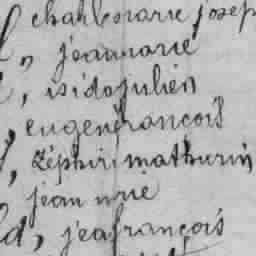 charlesmarie joseph
l, jeanmarie
l, isidojulien
, eugenefrancois
l, zéphiri mathurin
jean marie
d, jeafrançois